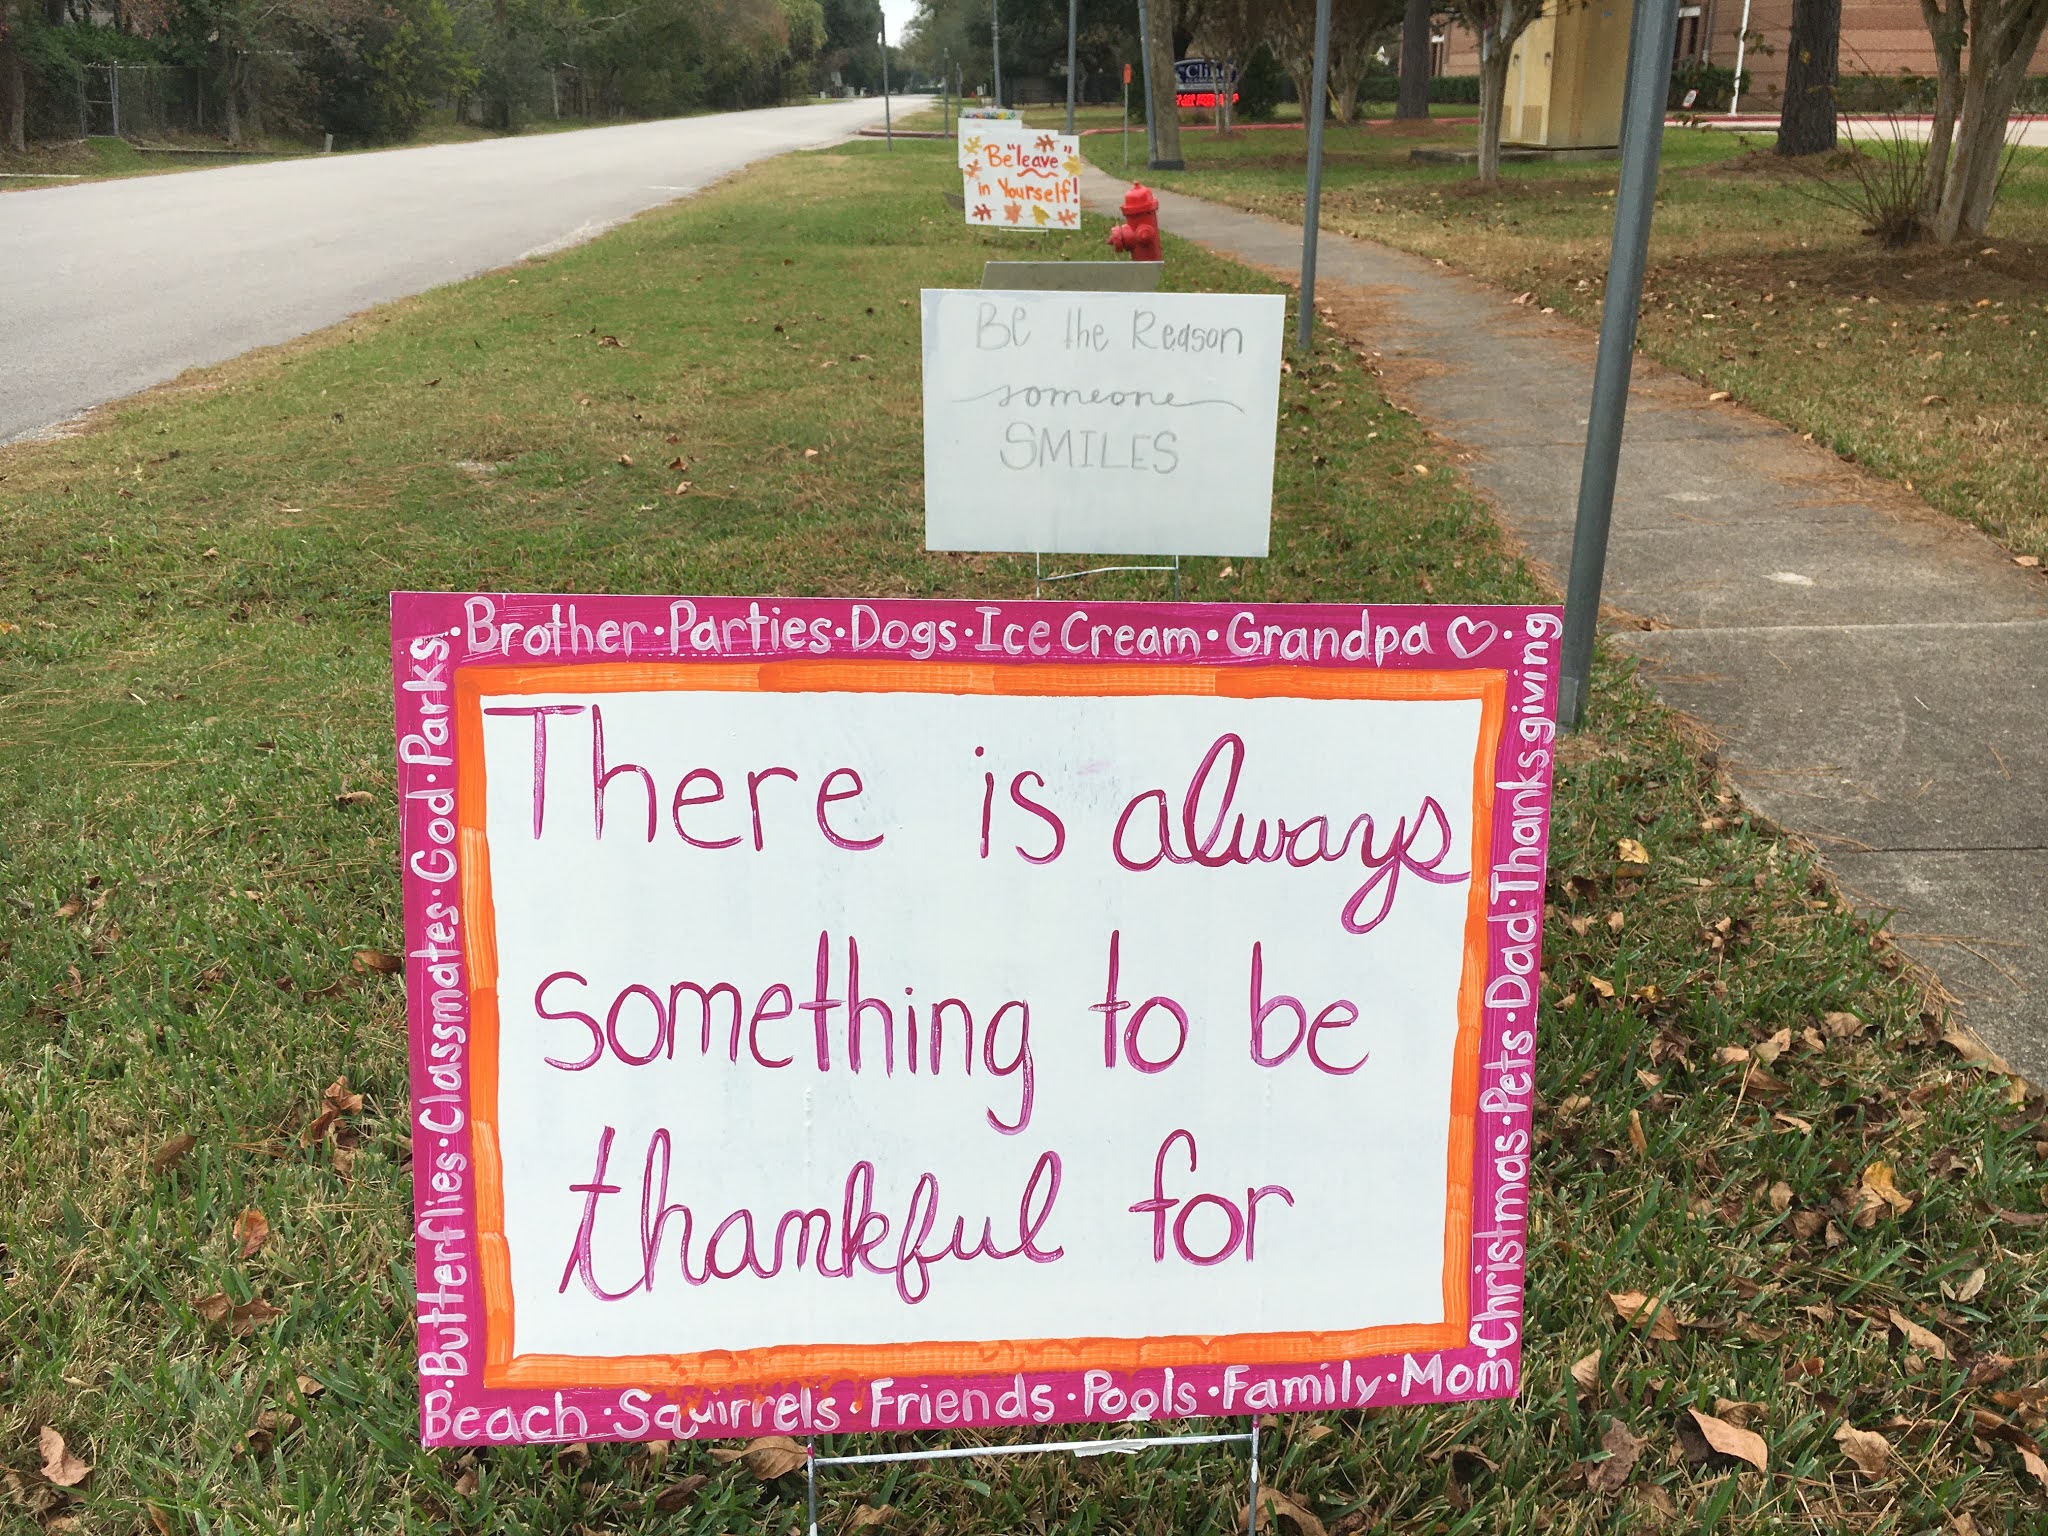 Cline
Be "leave"
in Yourself!
Be the Reason
someone
SMILES
· Brother · Parties · Dogs · Ice Cream · Grandpa ♡ ·
There is always
something to be
thankful for
Christmas · Pets · Dad · Thanksgiving
Beach · Squirrels · Friends · Pools · Family · Mom ·
· Butterflies · Classmates · God · Parks